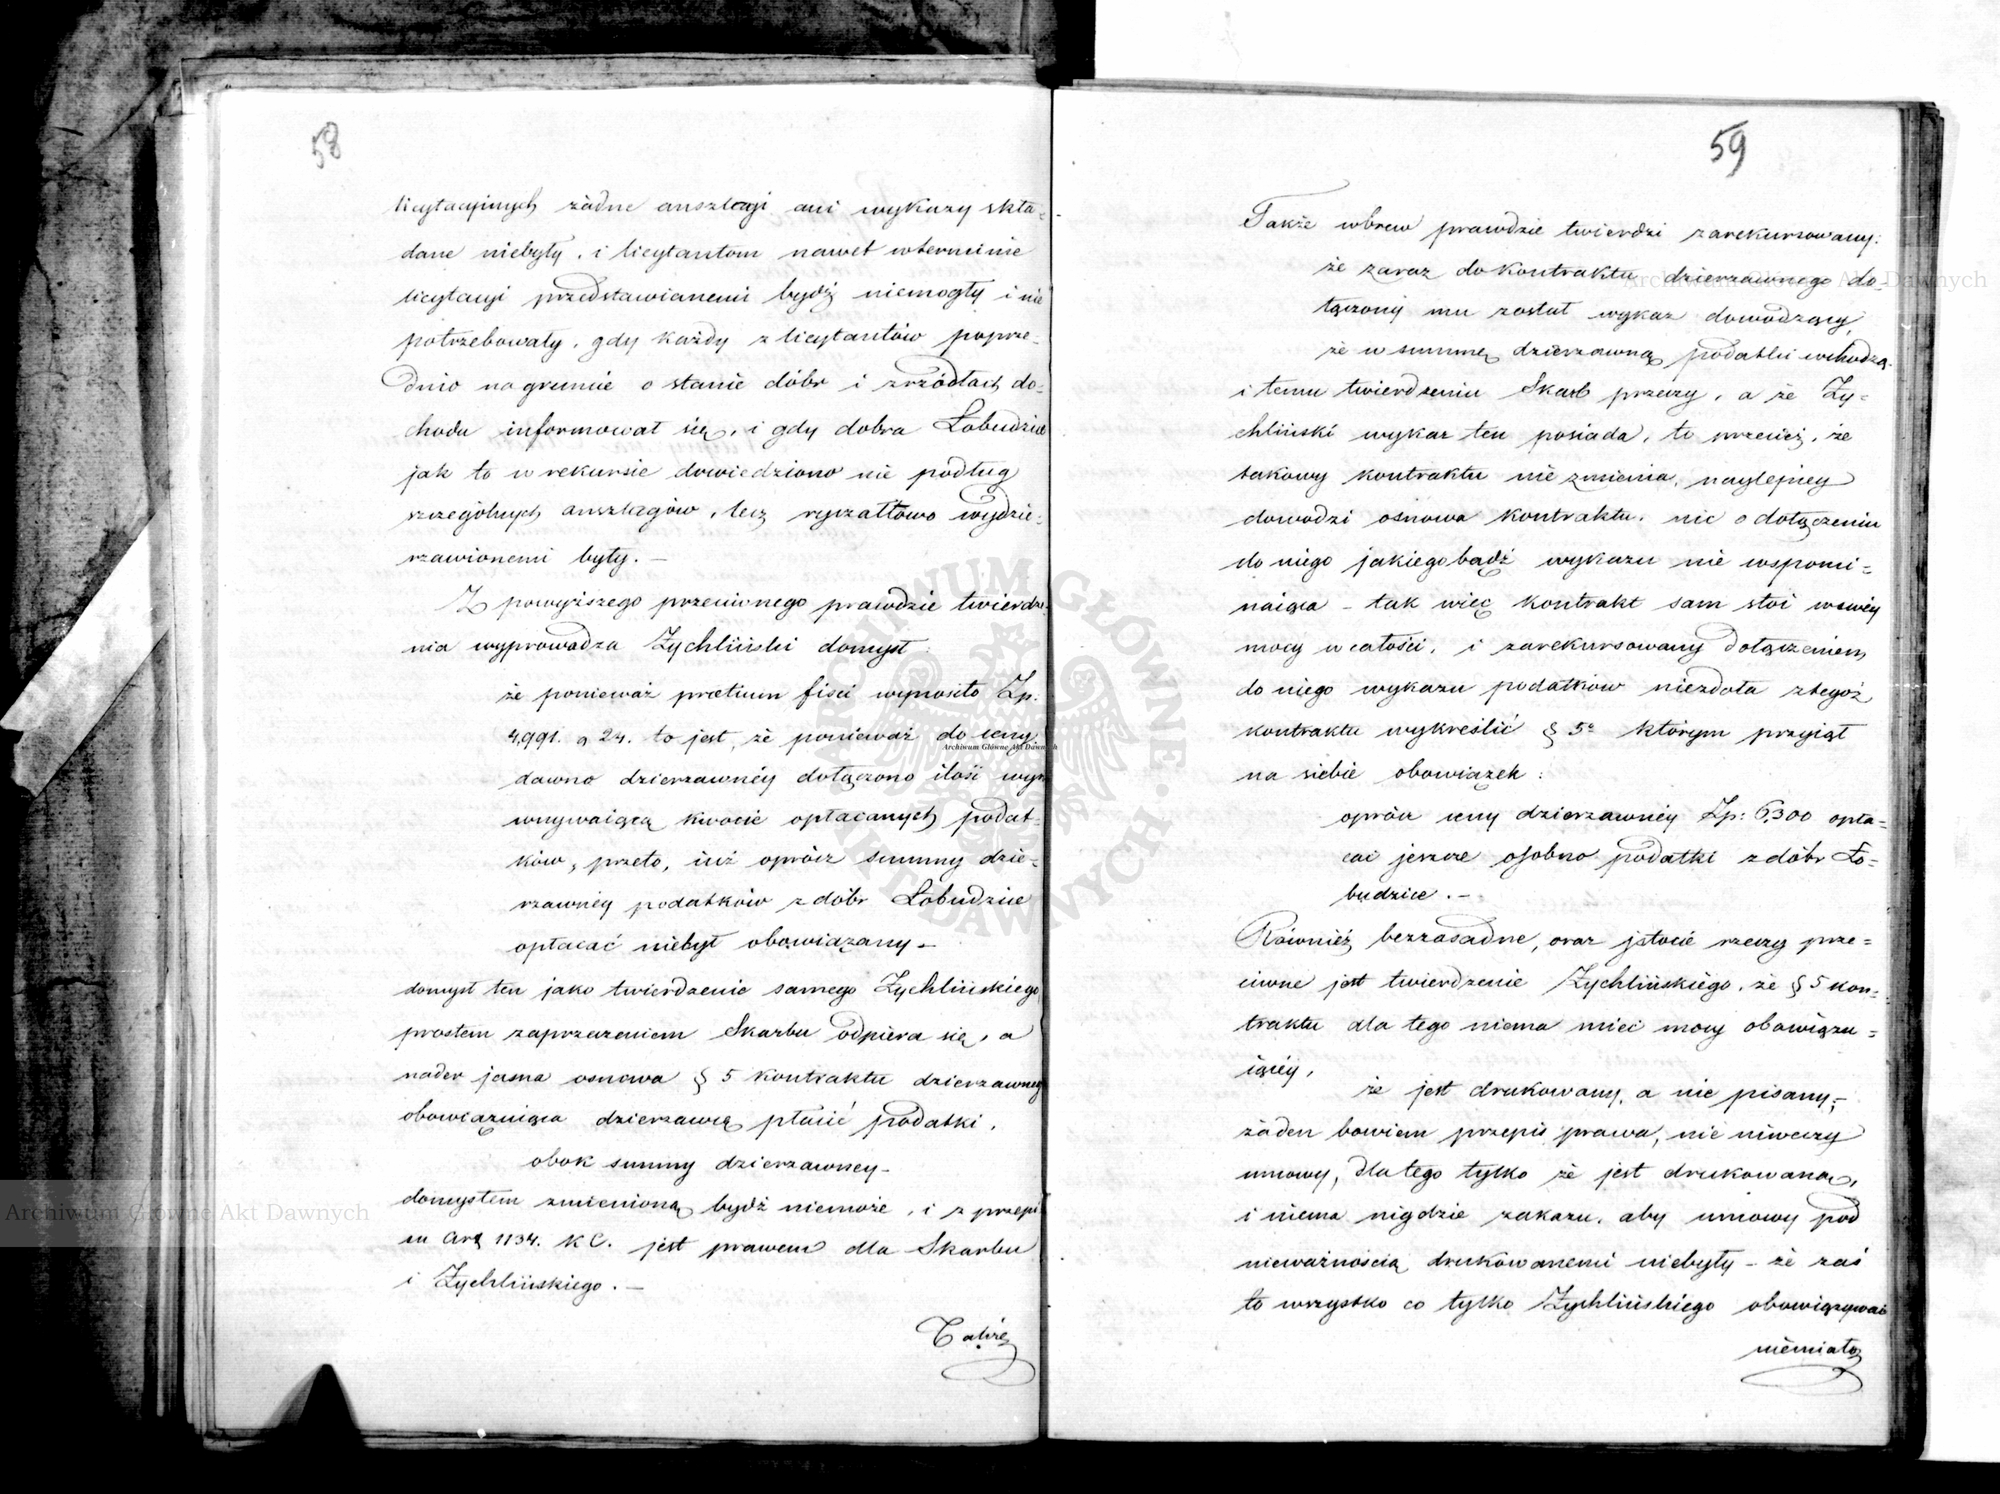 58
licytacyinych żadne anszlagi ani wykazy skła=
dane niebyły, i licytantom nawet w terminie
licytacyi przedstawianemi bydź niemogły i nie
potrzebowały, gdy każdy z licytantów poprze=
dnio na gruncie o stanie dóbr i źrzódłach do=
chodu informował się, i gdy dobra Łobudzice
jak to w rekursie dowiedziono nie podług
szczególnych anszlagów, lecz ryczałtowo wydzie=
rzawionemi były. —
Z powyższego przeciwnego prawdzie twierdze=
nia wyprowadza Zychliński domysł:
że ponieważ prætium fisci wynosiło Zp.
4,991. g 24. to jest, że ponieważ do ceny
dawno dzierzawnéy dołączono ilość wyró
wnywaiącą kwocie opłacanych podat=
ków, przeto, iuż oprócz summy dzie=
rzawnéy podatków z dóbr Łobudzice
opłacać niebył obowiązany —
domysł ten jako twierdzenie samego Zychlińskiego
prostem zaprzeczeniem Skarbu odpiera się, a
nader jasna osnowa § 5 kontraktu dzierzawnego
obowiązuiąca dzierzawcę płacić podatki,
obok summy dzierzawney —
domysłem zmienioną bydź niemoże, i z przepi
su Art 1134. K C. jest prawem dla Skarbu
i Zychlińskiego. —
Także
59
Także wbrew prawdzie twierdzi zarekursowany:
że zaraz do kontraktu dzierzawnego do=
łączony mu został wykaz dowodzący,
że w summę dzierzawną podatki wchodzą.
i temu twierdzeniu Skarb przeczy, a że Zy=
chliński wykaz ten posiada, to przecież, że
takowy kontraktu nie zmienia, naylepiey
dowodzi osnowa kontraktu, nic o dołączeniu
do niego jakiegobądź wykazu nie wspomi=
naiąca — tak więc kontrakt sam stoi w swéy
mocy w całości, i zarekursowany dołączeniem
do niego wykazu podatków niezdoła z tegoż
kontraktu wykreślić § 5º którym przyiął
na siebie obowiązek:
oprócz ceny dzierzawnéy Zp: 6,300 opła=
cać jeszcze osobno podatki z dóbr Ło=
budzice. —
Również bezzasadne, oraz istocie rzeczy prze=
ciwne jest twierdzenie Zychlińskiego, że § 5 kon=
traktu dla tego niema mieć mocy obowiązu=
iącéy,
że jest drukowany, a nie pisany; —
żaden bowiem przepis prawa, nie niweczy
umowy, dla tego tylko że jest drukowana,
i niema nigdzie zakazu, aby umowy pod
nieważnością drukowanemi niebyły — że zaś
to wszystko co tylko Zychlińskiego obowiązywać
niemiało
Archiwum Główne Akt Dawnych
Archiwum Główne Akt Dawnych
Archiwum Główne Akt Dawnych
ARCHIWUM GŁÓWNE · AKT DAWNYCH ·